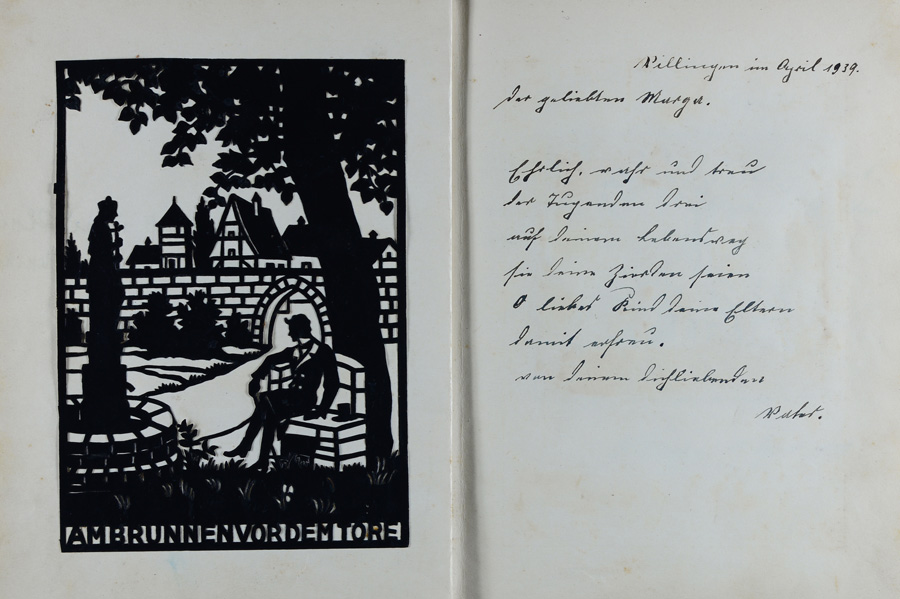 AM BRUNNEN VOR DEM TORE
Villingen im April 1939.
Der geliebten Marga.
Ehrlich, wahr und treu
der Tugenden drei
auf deinem Lebensweg
sie deine Zierden seien
O liebes Kind deine Eltern
damit erfreu.
von deinem dichliebenden
Vater.